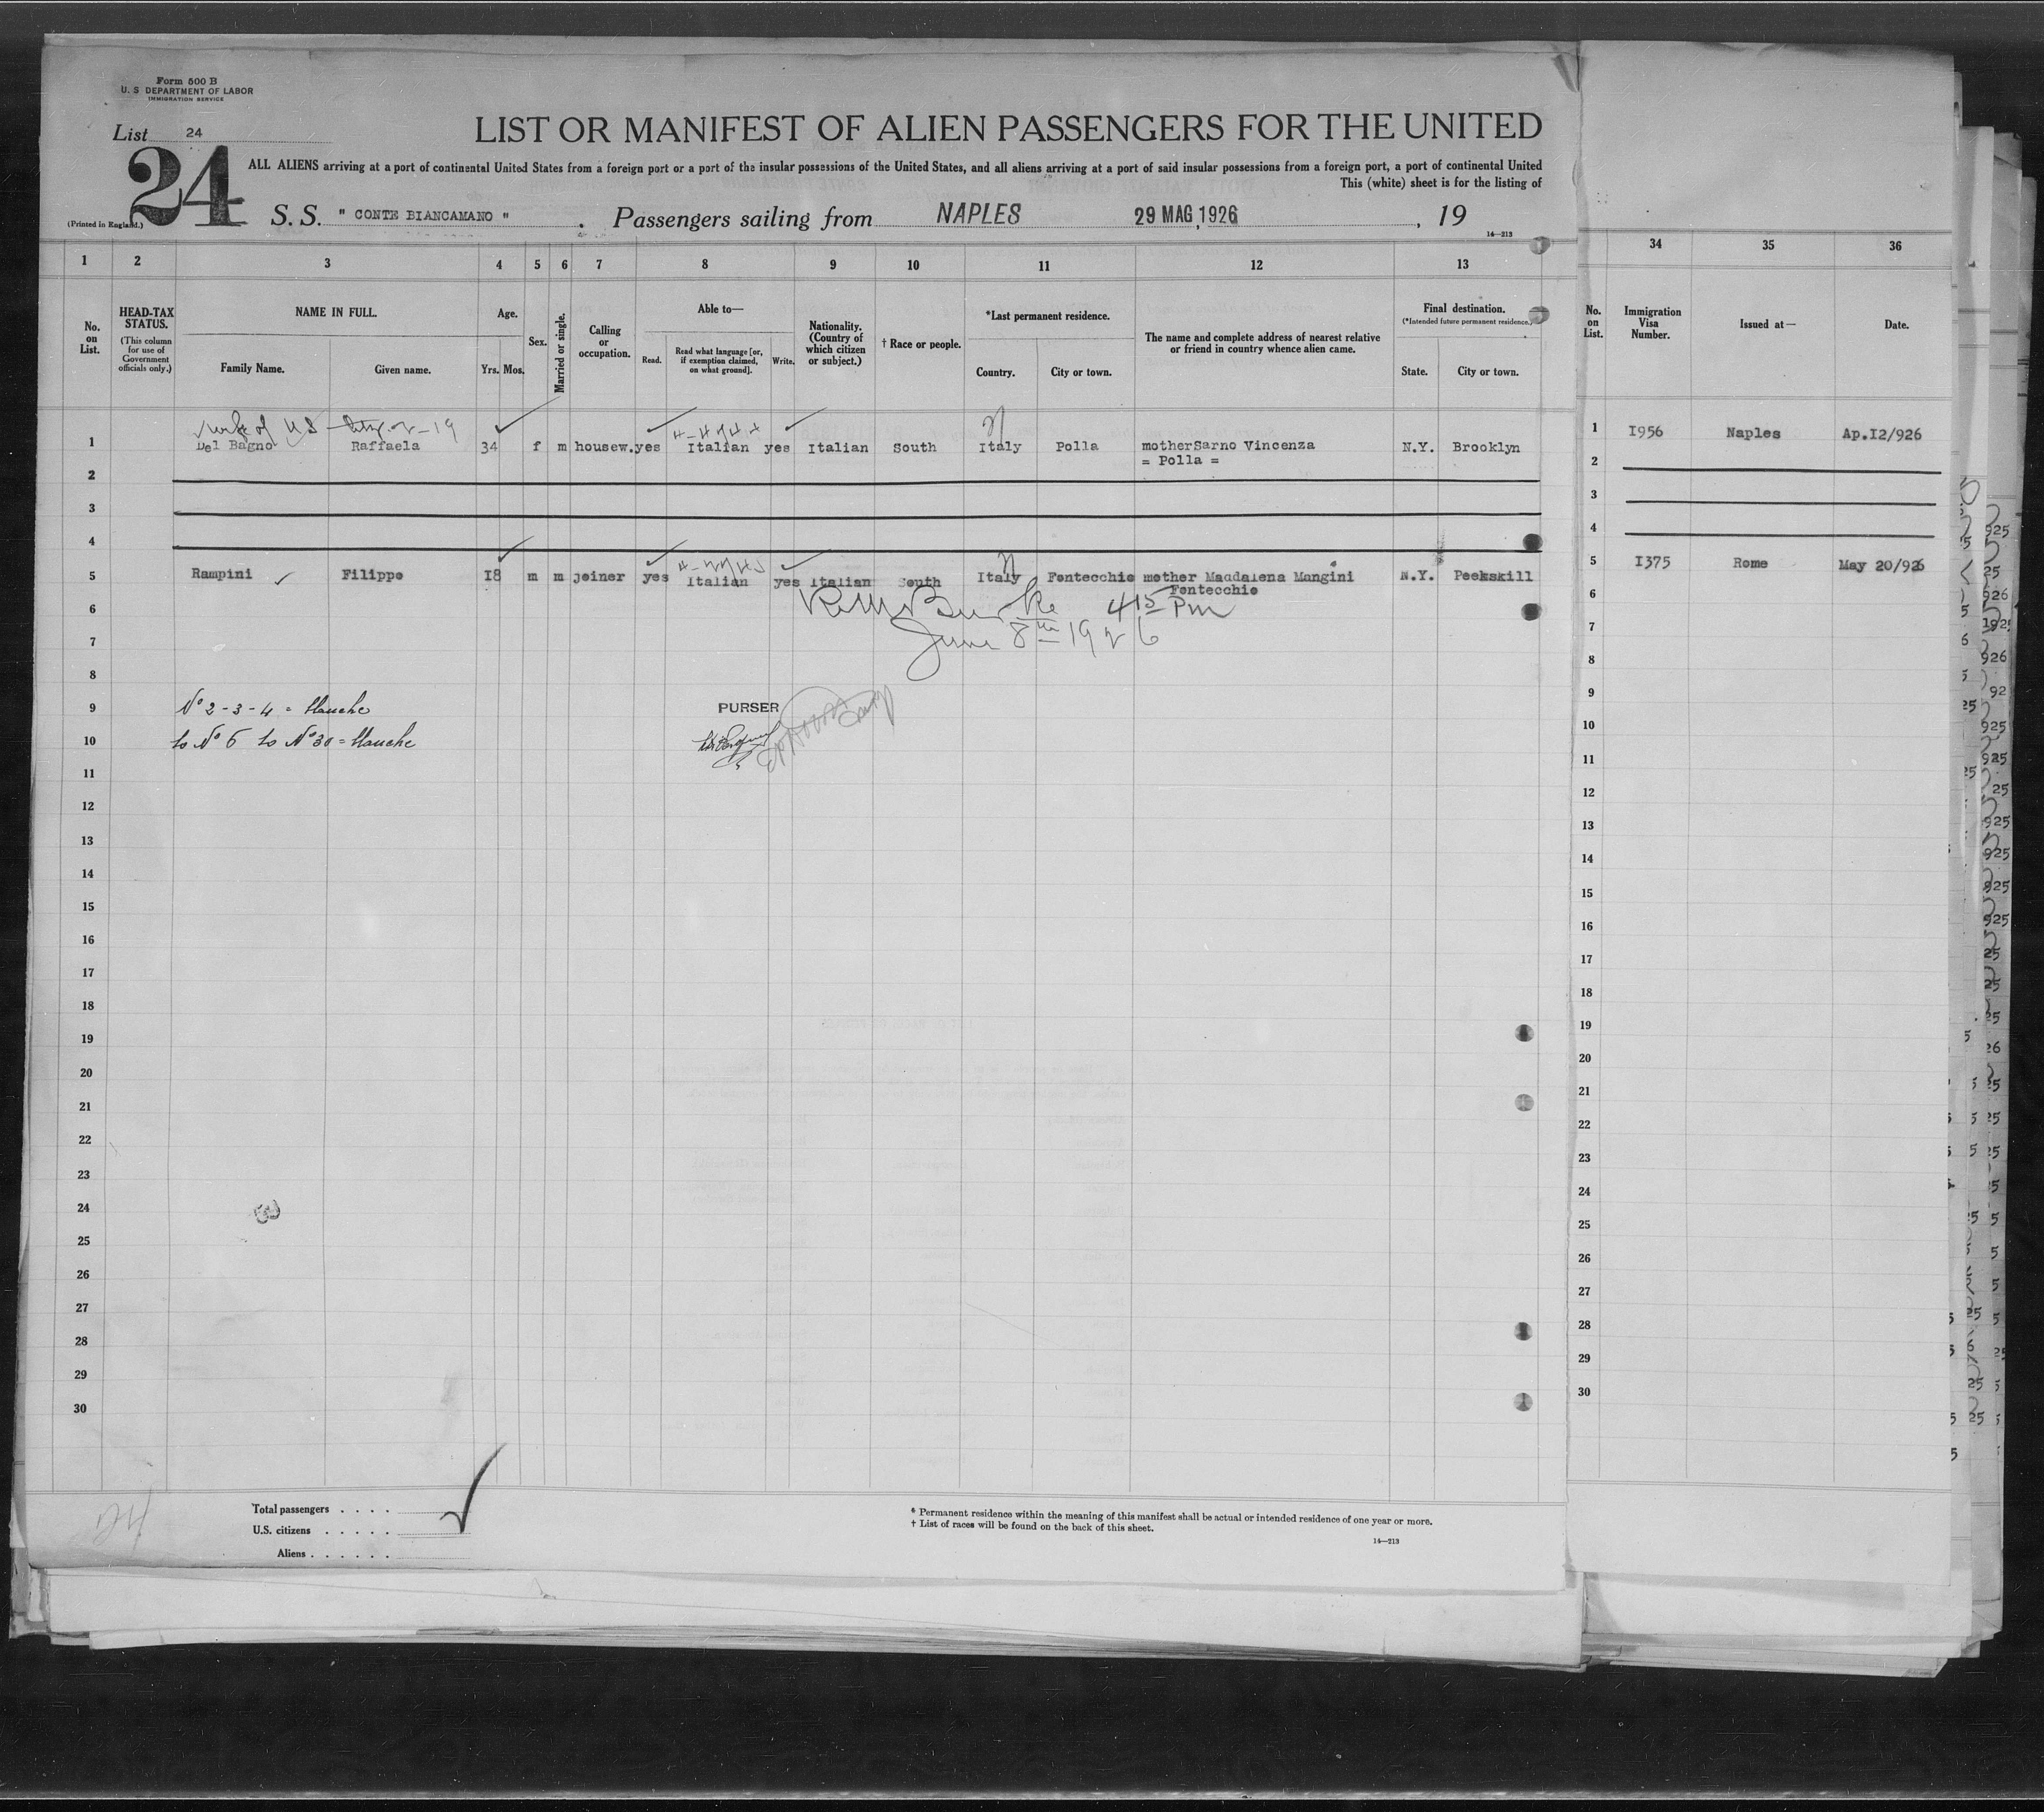 Form 500 B
U. S DEPARTMENT OF LABOR
IMMIGRATION SERVICE
List 24
LIST OR MANIFEST OF ALIEN PASSENGERS FOR THE UNITED
24
ALL ALIENS arriving at a port of continental United States from a foreign port or a port of the insular possessions of the United States, and all aliens arriving at a port of said insular possessions from a foreign port, a port of continental United
This (white) sheet is for the listing of
(Printed in England.)
S. S. " CONTE BIANCAMANO " . Passengers sailing from NAPLES 29 MAG 1926 , 19
14—213
1 2 3 4 5 6 7 8 9 10 11 12 13 34 35 36
No. on List.
HEAD-TAX STATUS.
(This column for use of Government officials only.)
NAME IN FULL.
Family Name. Given name.
Age.
Yrs. Mos.
Sex.
Married or single.
Calling or occupation.
Able to—
Read. Read what language [or, if exemption claimed, on what ground]. Write.
Nationality. (Country of which citizen or subject.)
† Race or people.
*Last permanent residence.
Country. City or town.
The name and complete address of nearest relative or friend in country whence alien came.
Final destination.
(*Intended future permanent residence.)
State. City or town.
No. on List.
Immigration Visa Number.
Issued at—
Date.
wife of US
1 Del Bagno Raffaela 34 f m housew. yes Italian yes Italian South Italy Polla mother Sarno Vincenza N.Y. Brooklyn 1 I956 Naples Ap.I2/926
= Polla =
2 2
3 3
4 4
5 Rampini Filippo I8 m m joiner yes Italian yes Italian South Italy Fontecchio mother Maddalena Mangini N.Y. Peekskill 5 I375 Rome May 20/926
Fontecchio
6 Burke 4 15 Pm 6
7 June 8th 1926 7
8 8
9 No 2 - 3 - 4 = blanche PURSER 9
10 to No 6 to No 30 = blanche 10
11 11
12 12
13 13
14 14
15 15
16 16
17 17
18 18
19 19
20 20
21 21
22 22
23 23
24 24
25 25
26 26
27 27
28 28
29 29
30 30
24
Total passengers . . . .
U.S. citizens . . . . .
Aliens . . . . . .
* Permanent residence within the meaning of this manifest shall be actual or intended residence of one year or more.
† List of races will be found on the back of this sheet.
14—213